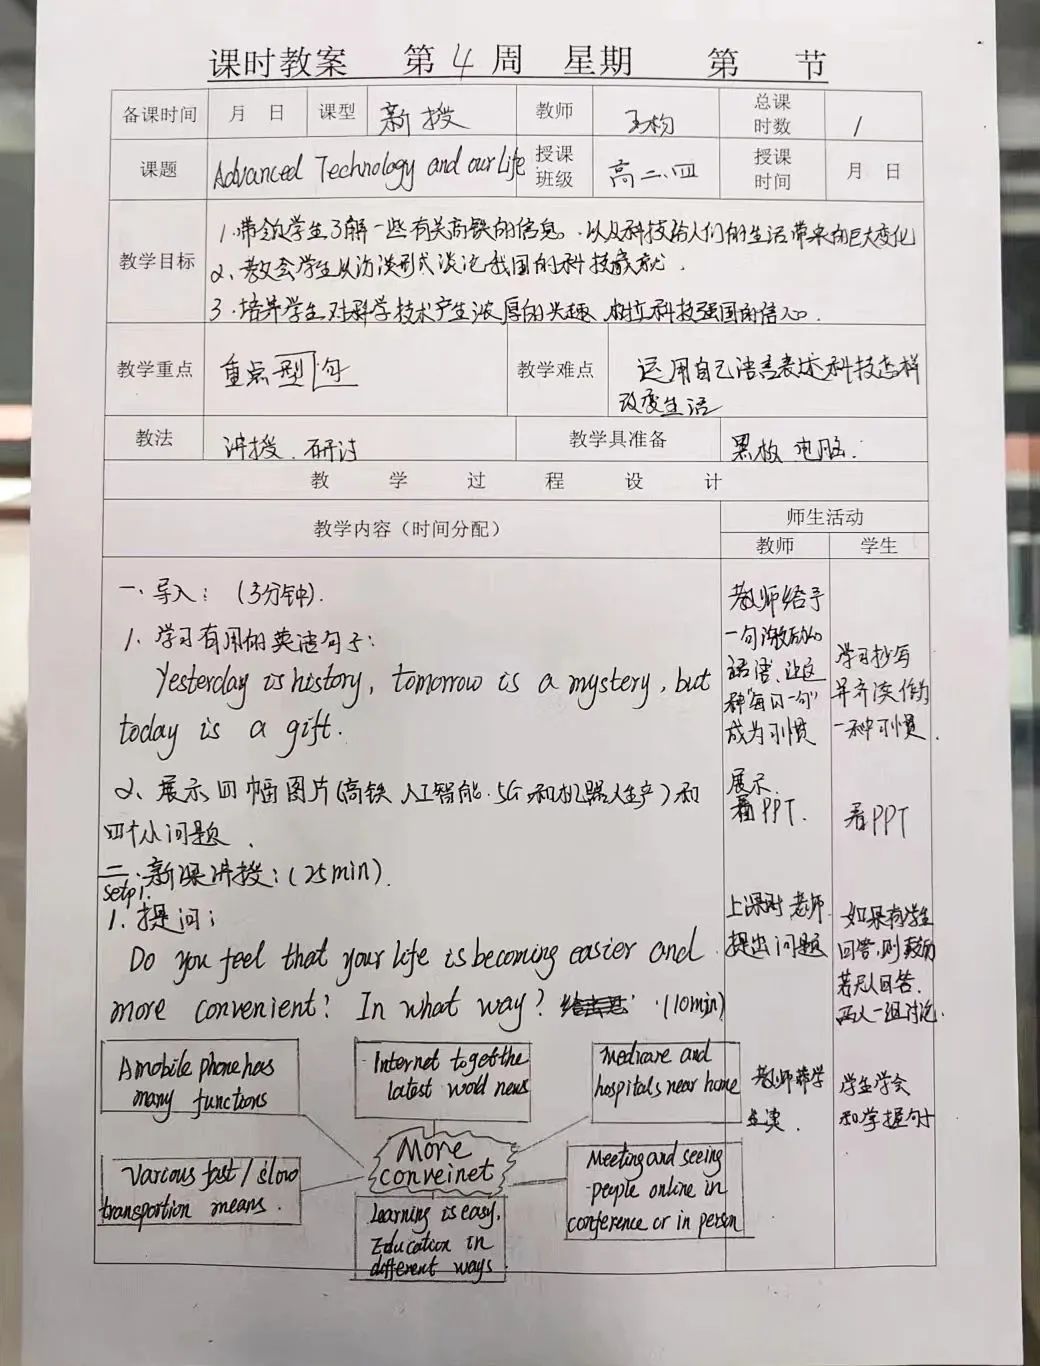 课时教案 第 4 周 星期 第 节
备课时间 月 日 课型 新授 教师 总课时数 1
课题 Advanced Technology and our Life 授课班级 高二.四 授课时间 月 日
教学目标
1.带领学生了解一些有关高铁的信息.以及科技给人们的生活带来的巨大变化
2、教会学生以访谈形式谈论我国的科技成就.
3.培养学生对科学技术产生浓厚的兴趣.树立科技强国的信心.
教学重点 重点型句
教学难点 运用自己语言表达科技怎样
改变生活
教法 讲授.研讨 教学具准备 黑板 电脑.
教学过程设计
教学内容（时间分配）
师生活动
教师 学生
一、导入：(3分钟).
1、学习有用的英语句子:
Yesterday is history, tomorrow is a mystery, but
today is a gift.
2、展示四幅图片(高铁 人工智能.5G和机器人生产)和
四个小问题.
二.新课讲授:(25min).
setp1.
1.提问:
Do you feel that your life is becoming easier and
more convenient? In what way? (10min)
A mobile phone has
many functions
Internet to get the
latest world news
Medicare and
hospitals near home
More
conveinet
Various fast/slow
transportion means.
Learning is easy,
Education in
different ways
Meeting and seeing
people online in
conference or in person
教师给予
一句激励的
话语、让这
种"每日一句"
成为习惯
展示
看PPT.
上课时老师
提出问题
老师带学
生读.
学习抄写
并齐读作为
一种习惯.
看PPT
如果有学生
回答,则鼓励
若无人回答.
两人一组讨论.
学生学会
和掌握句子